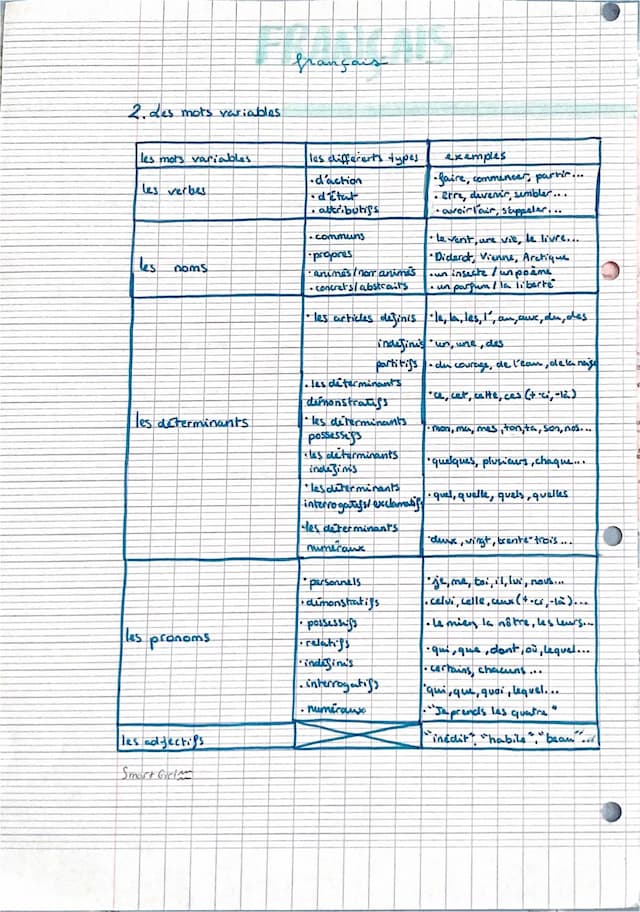 FRANÇAIS
français
2. Les mots variables
les mots variables les différents types exemples
les verbes
· d'action · faire, commencer, partir...
· d'État · être, devenir, sembler...
· attributifs · avoir l'air, s'appeler...
les noms
· communs · le vent, une vie, le livre...
· propres · Diderot, Vienne, Arctique
· animés/non animés · un insecte / un poème
· concrets/abstraits · un parfum / la liberté
les déterminants
· les articles définis · le, la, les, l', au, aux, du, des
indéfinis · un, une, des
partitifs · du courage, de l'eau, de la neige
· les déterminants
démonstratifs · ce, cet, cette, ces (+ -ci, -là)
· les déterminants
possessifs · mon, ma, mes, ton, ta, son, nos...
· les déterminants
indéfinis · quelques, plusieurs, chaque...
· les déterminants
interrogatifs/exclamatifs · quel, quelle, quels, quelles
· les déterminants
numéraux · deux, vingt, trente-trois...
les pronoms
· personnels · je, me, toi, il, lui, nous...
· démonstratifs · celui, celle, ceux (+ -ci, -là)...
· possessifs · le mien, la nôtre, les leurs...
· relatifs · qui, que, dont, où, lequel...
· indéfinis · certains, chacuns...
· interrogatifs · qui, que, quoi, lequel...
· numéraux · "Je prends les quatre"
les adjectifs "inédit", "habile", "beau"...
Smart Girl